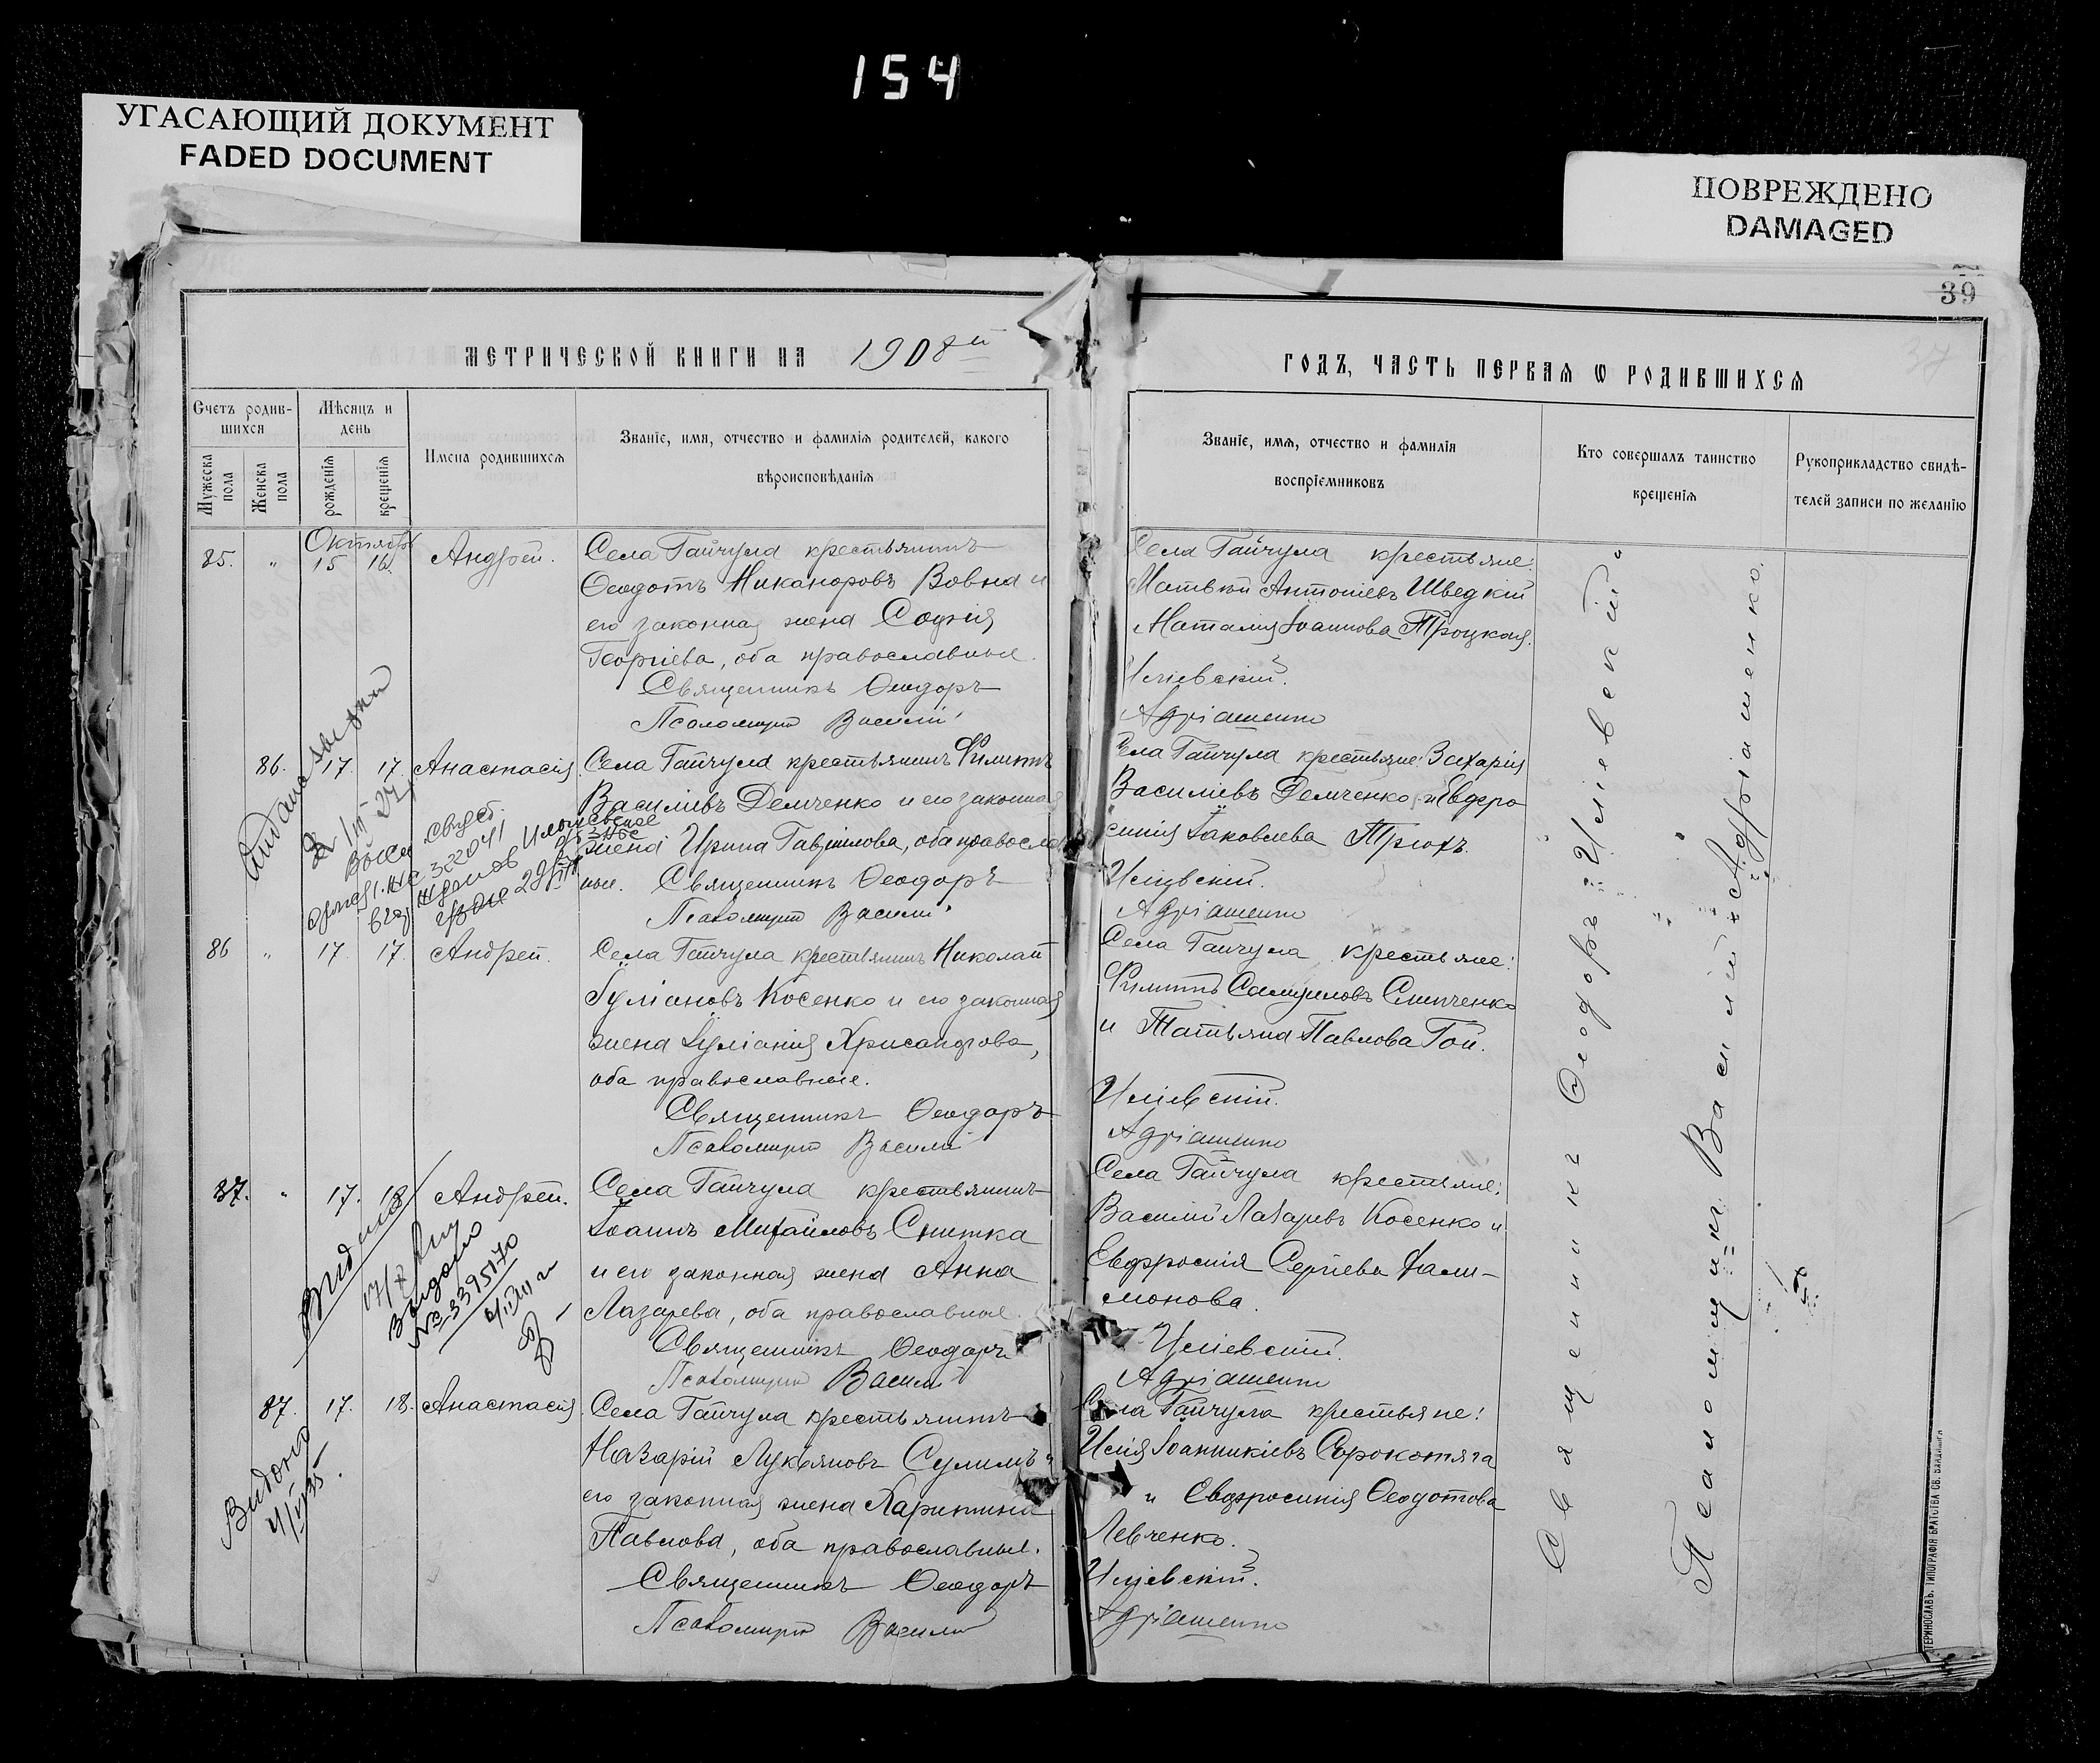 154
УГАСАЮЩИЙ ДОКУМЕНТ
FADED DOCUMENT
ПОВРЕЖДЕНО
DAMAGED
39
МЕТРИЧЕСКОЙ КНИГИ НА 1908й
ГОДЪ, ЧАСТЬ ПЕРВАЯ Ѡ РОДИВШИХСЯ
Счетъ родив-
шихся
Мужеска пола
Женска пола
Мѣсяцъ и
день
рожденія
крещенія
Имена родившихся
Званіе, имя, отчество и фамилія родителей, какого
вѣроисповѣданія
Званіе, имя, отчество и фамилія
воспріемниковъ
Кто совершалъ таинство
крещенія
Рукоприкладство свидѣ-
телей записи по желанію
Октября
85. " 15 16. Андрей.
Села Гайчула крестьянинъ
Ѳеодотъ Никаноровъ Вовна и
его законная жена Софія
Георгіева, оба православные.
Священникъ Ѳеодоръ
Псаломщикъ Василій
Села Гайчула крестьяне:
Матвѣй Антоніевъ Шведкій
Наталія Іоаннова Троцкая.
Иліевскій.
Адріашенко
86. 17. 17. Анастасія.
Села Гайчула крестьянинъ Филиппъ
Василіевъ Демченко и его законная
жена Ирина Гавріилова, оба православ
ные. Священникъ Ѳеодоръ
Псаломщикъ Василій
Села Гайчула крестьяне: Захарія
Василіевъ Демченко и Евфро
синія Іаковлева Трюхъ.
Иліевскій.
Адріашенко
322041
86 " 17. 17. Андрей.
Села Гайчула крестьянинъ Николай
Іуліановъ Косенко и его законная
жена Іуліанія Хрисанфова,
оба православные.
Священникъ Ѳеодоръ
Псаломщикъ Василій
Села Гайчула крестьяне:
Филиппъ Самуиловъ Слипченко
и Татьяна Павлова Гой.
Иліевскій.
Адріашенко
87. " 17. 18 Андрей.
Села Гайчула крестьянинъ
Іоаннъ Михаиловъ Снитка
и его законная жена Анна
Лазарева, оба православные.
Священникъ Ѳеодоръ
Псаломщикъ Василій
Села Гайчула крестьяне:
Василій Лазаревъ Косенко и
Евфросинія Сергіева Фали-
монова.
Иліевскій.
Адріашенко
№ 3395170
87. 17. 18. Анастасія.
Села Гайчула крестьянинъ
Назарій Лукьяновъ Сулимъ и
его законная жена Харитина
Павлова, оба православные.
Священникъ Ѳеодоръ
Псаломщикъ Василій
Села Гайчула крестьяне:
Илія Іоанникіевъ Сорокотяга
и Евфросинія Ѳеодотова
Левченко.
Иліевскій.
Адріашенко
Видано
Священникъ Ѳеодоръ Иліевскій
Псаломщикъ Василій Адріашенко.